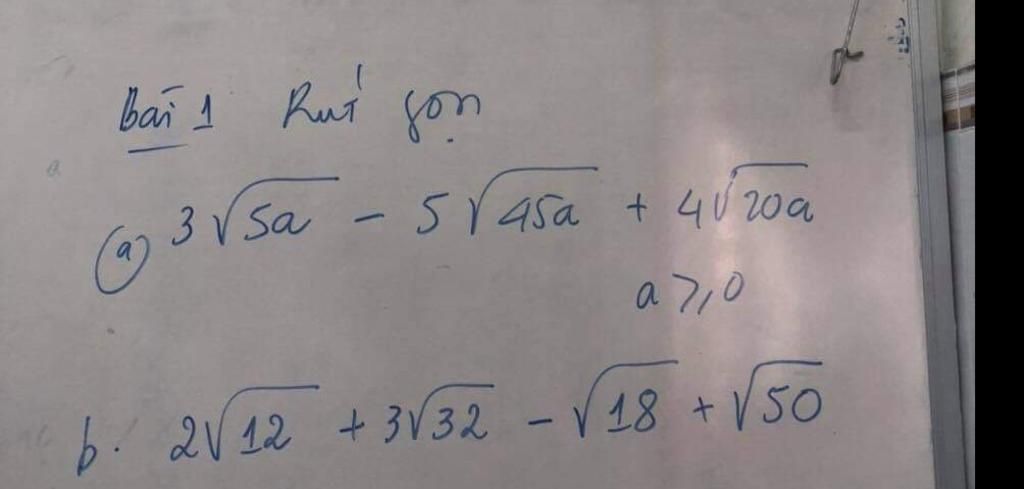 Bài 1 Rút gọn
(a) 3√5a - 5√45a + 4√20a
a ≥ 0
b. 2√12 + 3√32 - √18 + √50